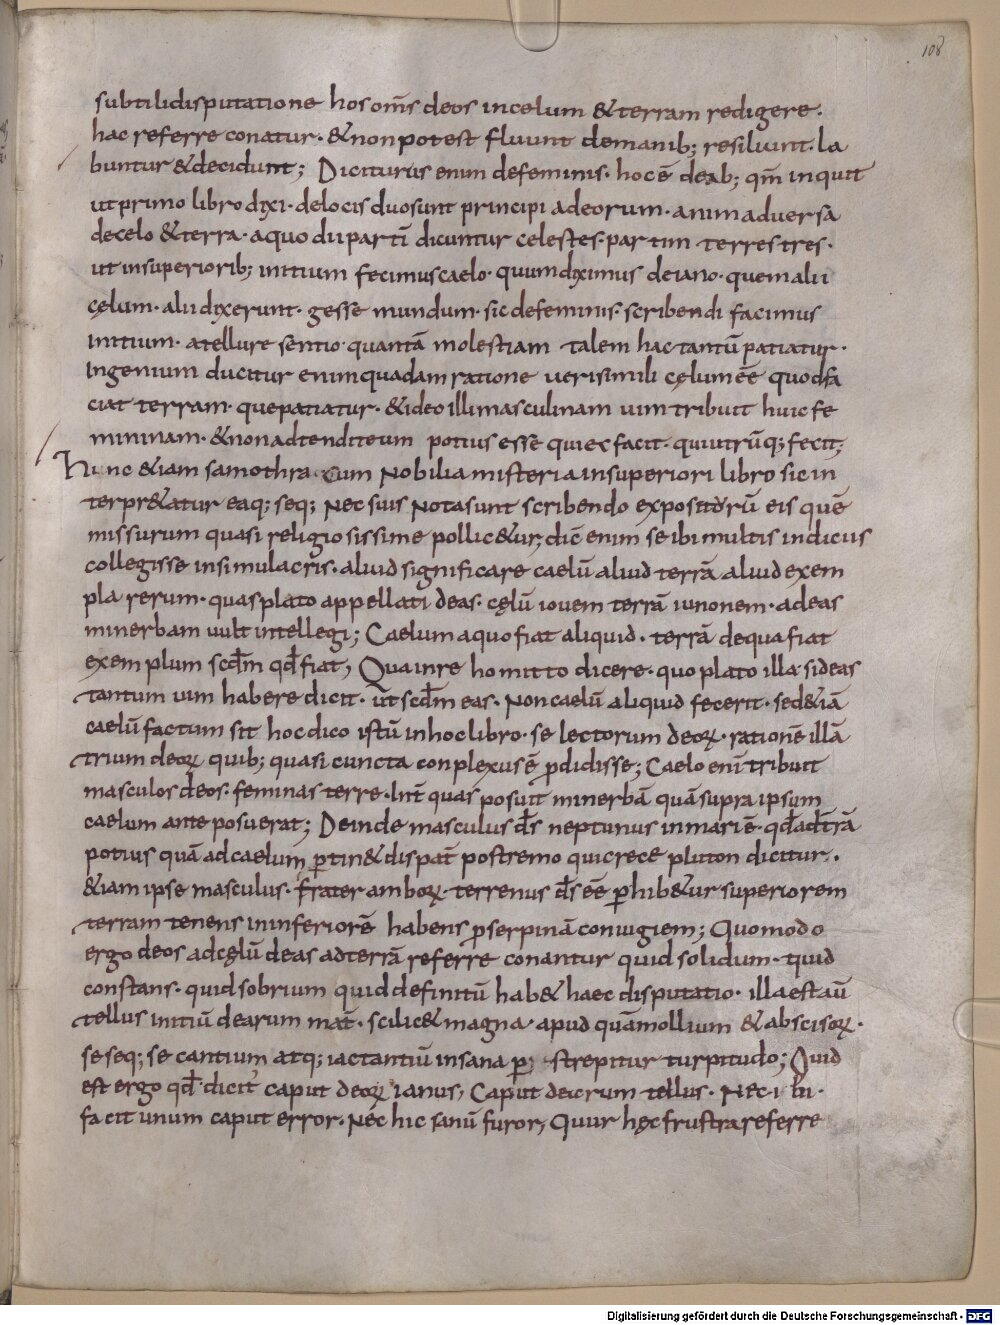 108
subtilidisputatione hos om̄s deos incelum & terram redigere.
hac referre conatur· & non potest fluunt demanib; resiliunt· la
buntur & decidunt; Dicturus enim defeminis· hoc ē deab; qm̄ inquit
ut primo libro dixi· delocis duo sunt principi adeorum· animaduersa
decelo & terra· aquo dii partī dicuntur celestes· partim terrestres·
ut insuperiorib; initium fecimus caelo· quum diximus deiano· quem alii
cęlum· alii dixerunt· gesse mundum· sic defeminis· scribendi facimus
initium· atellure sentio· quantā molestiam talem hac tantū patiatur·
Ingenium ducitur enim quadam ratione uerisimili cęlum ēē quod fa
ciat terram· quepatiatur· & ideo illi masculinam uim tribuit huic fe
mininam· & non adtendit eum potius esse qui ec facit· qui utrūq; fecit;
Hinc & iam samothra cum Nobilia misteria insuperiori libro sic in
terpr&atur eaq; seq; Nec suis Nota sunt scribendo expositurū eis quē
missurum quasi religiosissime pollic&ur, dic̄ enim se ibi multis indiciis
collegisse insimulacris· aliud significare caelū aliud terrā aliud exem
pla rerum· quas plato appellati deas· cęlū iouem terrā iunonem· adeas
minerbam uult intellegi; Caelum aquo fiat aliquid· terrā dequa fiat
exemplum scd̄m qd̄ fiat; Qua inre homitto dicere· quo plato illa sideas
tantum uim habere dicit· ut scd̄m eas· Non caelū aliquid fecerit· sed & iā
caelū factum sit hoc dico istū inhoc libro· se lectorum deoꝝ· rationē illā
trium deoꝝ quib; quasi cuncta conplexus ē ꝑdidisse; Caelo enī tribuit
masculos deos· feminas terre· Int̄ quas posuit minerbā quā supra ipsum
caelum ante posuerat; Deinde masculus d̄s neptunus inmari ē· qd̄ ad t̄rā
potius quā ad caelum ꝑtin& dispat̄ postremo qui crece pluton dicitur.
& iam ipse masculus· frater amboꝝ· terrenus d̄s ēē ꝑhib&ur superiorem
terram tenens ininferiorē habens ꝓserpinā coniugiem; Quomodo
ergo deos adcęlū deas adterrā referre conantur quid solidum· quid
constans· quid sobrium quid definitū hab& haec disputatio· illa est aū
tellus initiū dearum mat̄· scilic& magna· apud quā mollium & abscisoꝝ·
se seq; se cantium atq; iactantiū insana ꝑ strepitur turpitudo; Quid
est ergo qd̄ dicit̉ caput deoꝝ ianus; Caput dearum tellus· Nec ibi·
facit unum caput error· Nec hic sanū furor; Quur hęc frustra referre
Digitalisierung gefördert durch die Deutsche Forschungsgemeinschaft - DFG